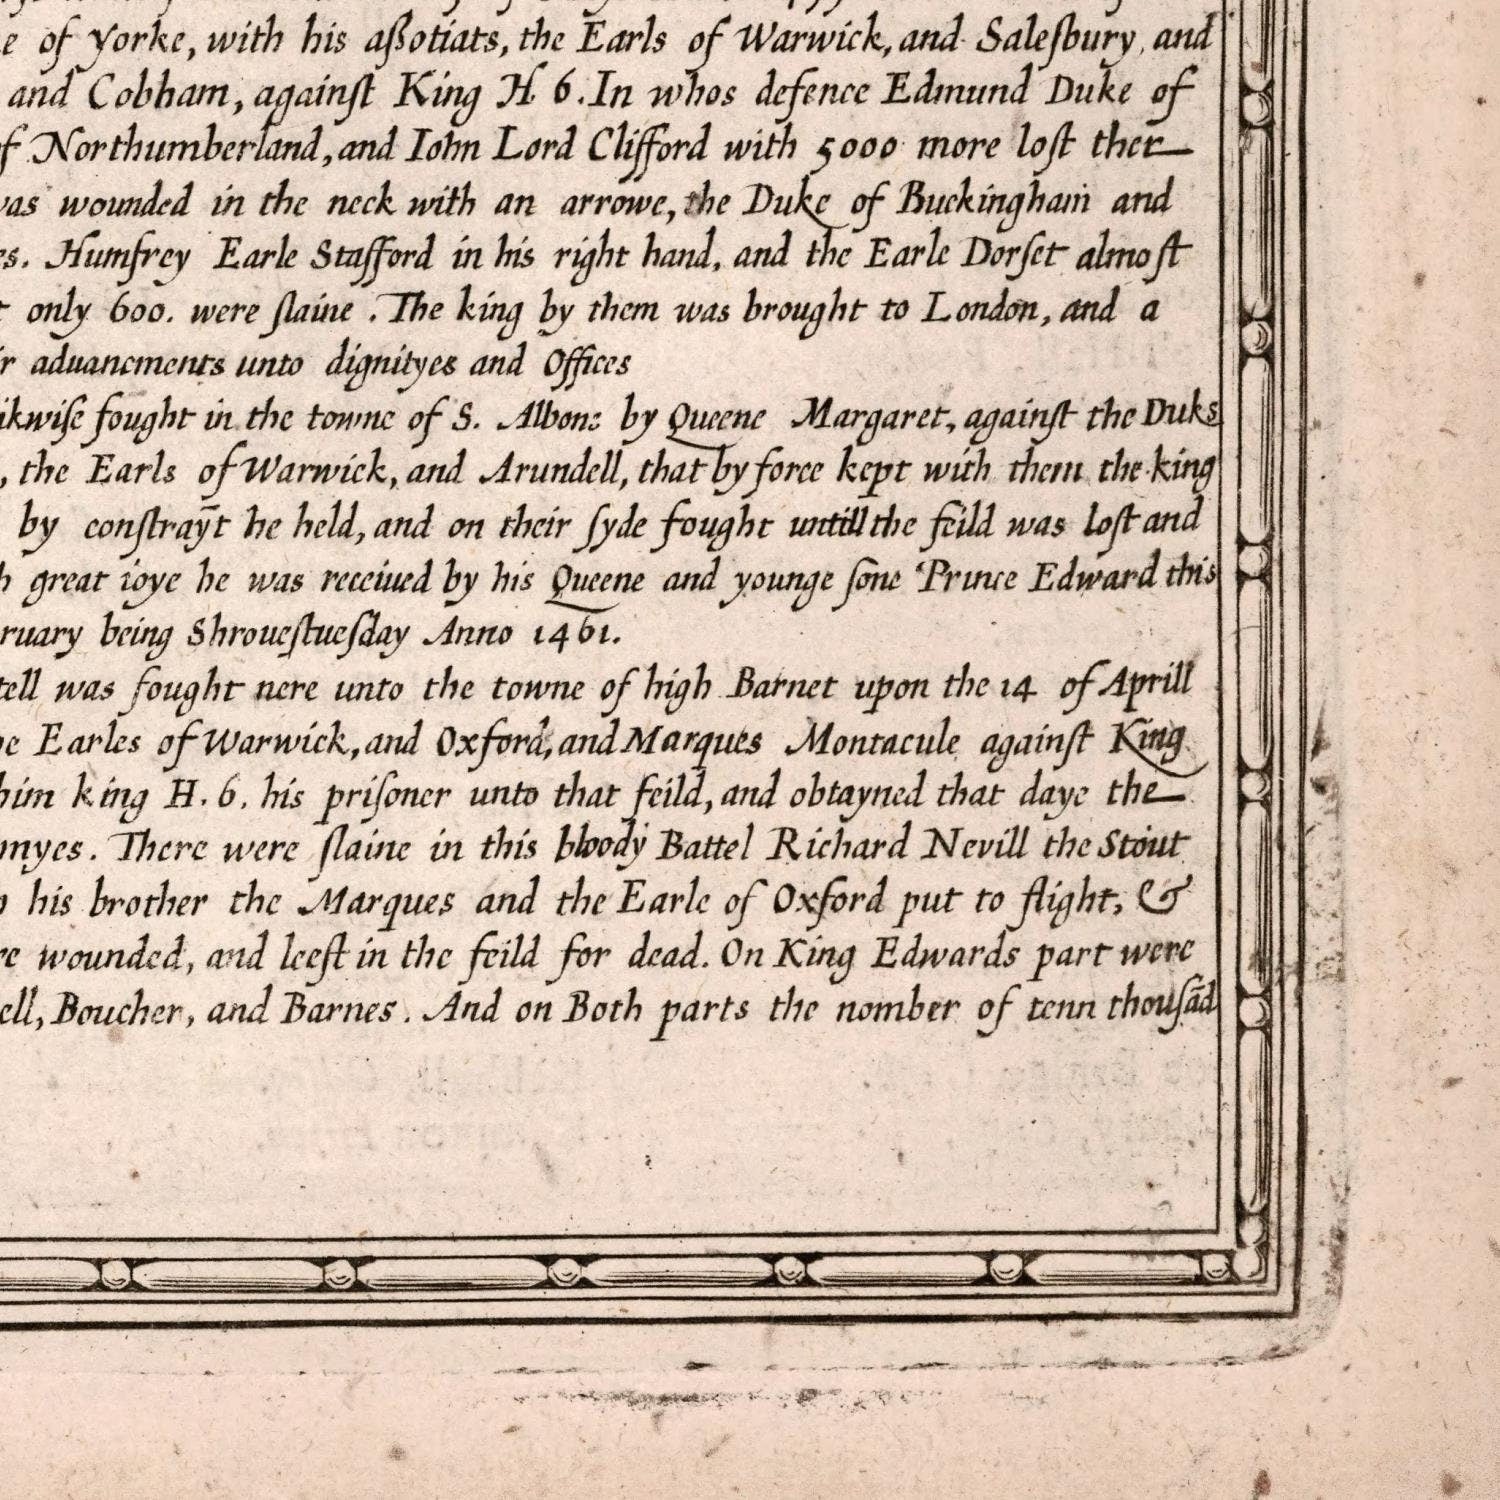 e of Yorke, with his aßotiats, the Earls of Warwick, and Saleſbury, and
and Cobham, againſt King H 6. In whos defence Edmund Duke of
f Northumberland, and Iohn Lord Clifford with 5000 more loſt ther
was wounded in the neck with an arrowe, the Duke of Buckingham and
es. Humfrey Earle Stafford in his right hand, and the Earle Dorſet almoſt
t only 600. were ſlaine . The king by them was brought to London, and a
ir aduancments unto dignityes and Offices
ikwiſe fought in the towne of S. Albons by Queene Margaret, againſt the Duks
, the Earls of Warwick, and Arundell, that by force kept with them the king
by conſtraÿt he held, and on their ſyde fought untill the feild was loſt and
h great ioye he was receiued by his Queene and younge ſone Prince Edward this
ruary being Shroueſtueſday Anno 1461.
tell was fought nere unto the towne of high Barnet upon the 14 of Aprill
he Earles of Warwick, and Oxford, and Marques Montacule againſt King
him king H. 6. his priſoner unto that feild, and obtayned that daye the
myes. There were ſlaine in this bloody Battel Richard Nevill the Stout
his brother the Marques and the Earle of Oxford put to flight, &
re wounded, and leeſt in the feild for dead. On King Edwards part were
ell, Boucher, and Barnes. And on Both parts the nomber of tenn thouſãd